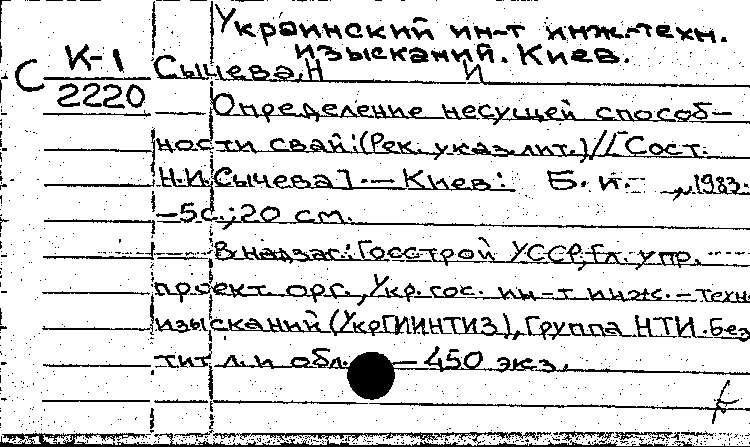 Украинский ин-т инж.-техн.
изысканий. Киев.
С К-1
2220
Сычева, Н И
Определение несущей способ-
ности свай: (Рек. указ. лит.) // [Сост.
Н.И. Сычева]. — Киев: Б. и. 1983.
-5с.; 20 см.
В надзаг.: Госстрой УССР, Гл. упр.
проект. орг., Укр. гос. ин-т инж.-техн
изысканий (УкрГИИНТИЗ), Группа НТИ. Без
тит. л. и обл. — 450 экз.